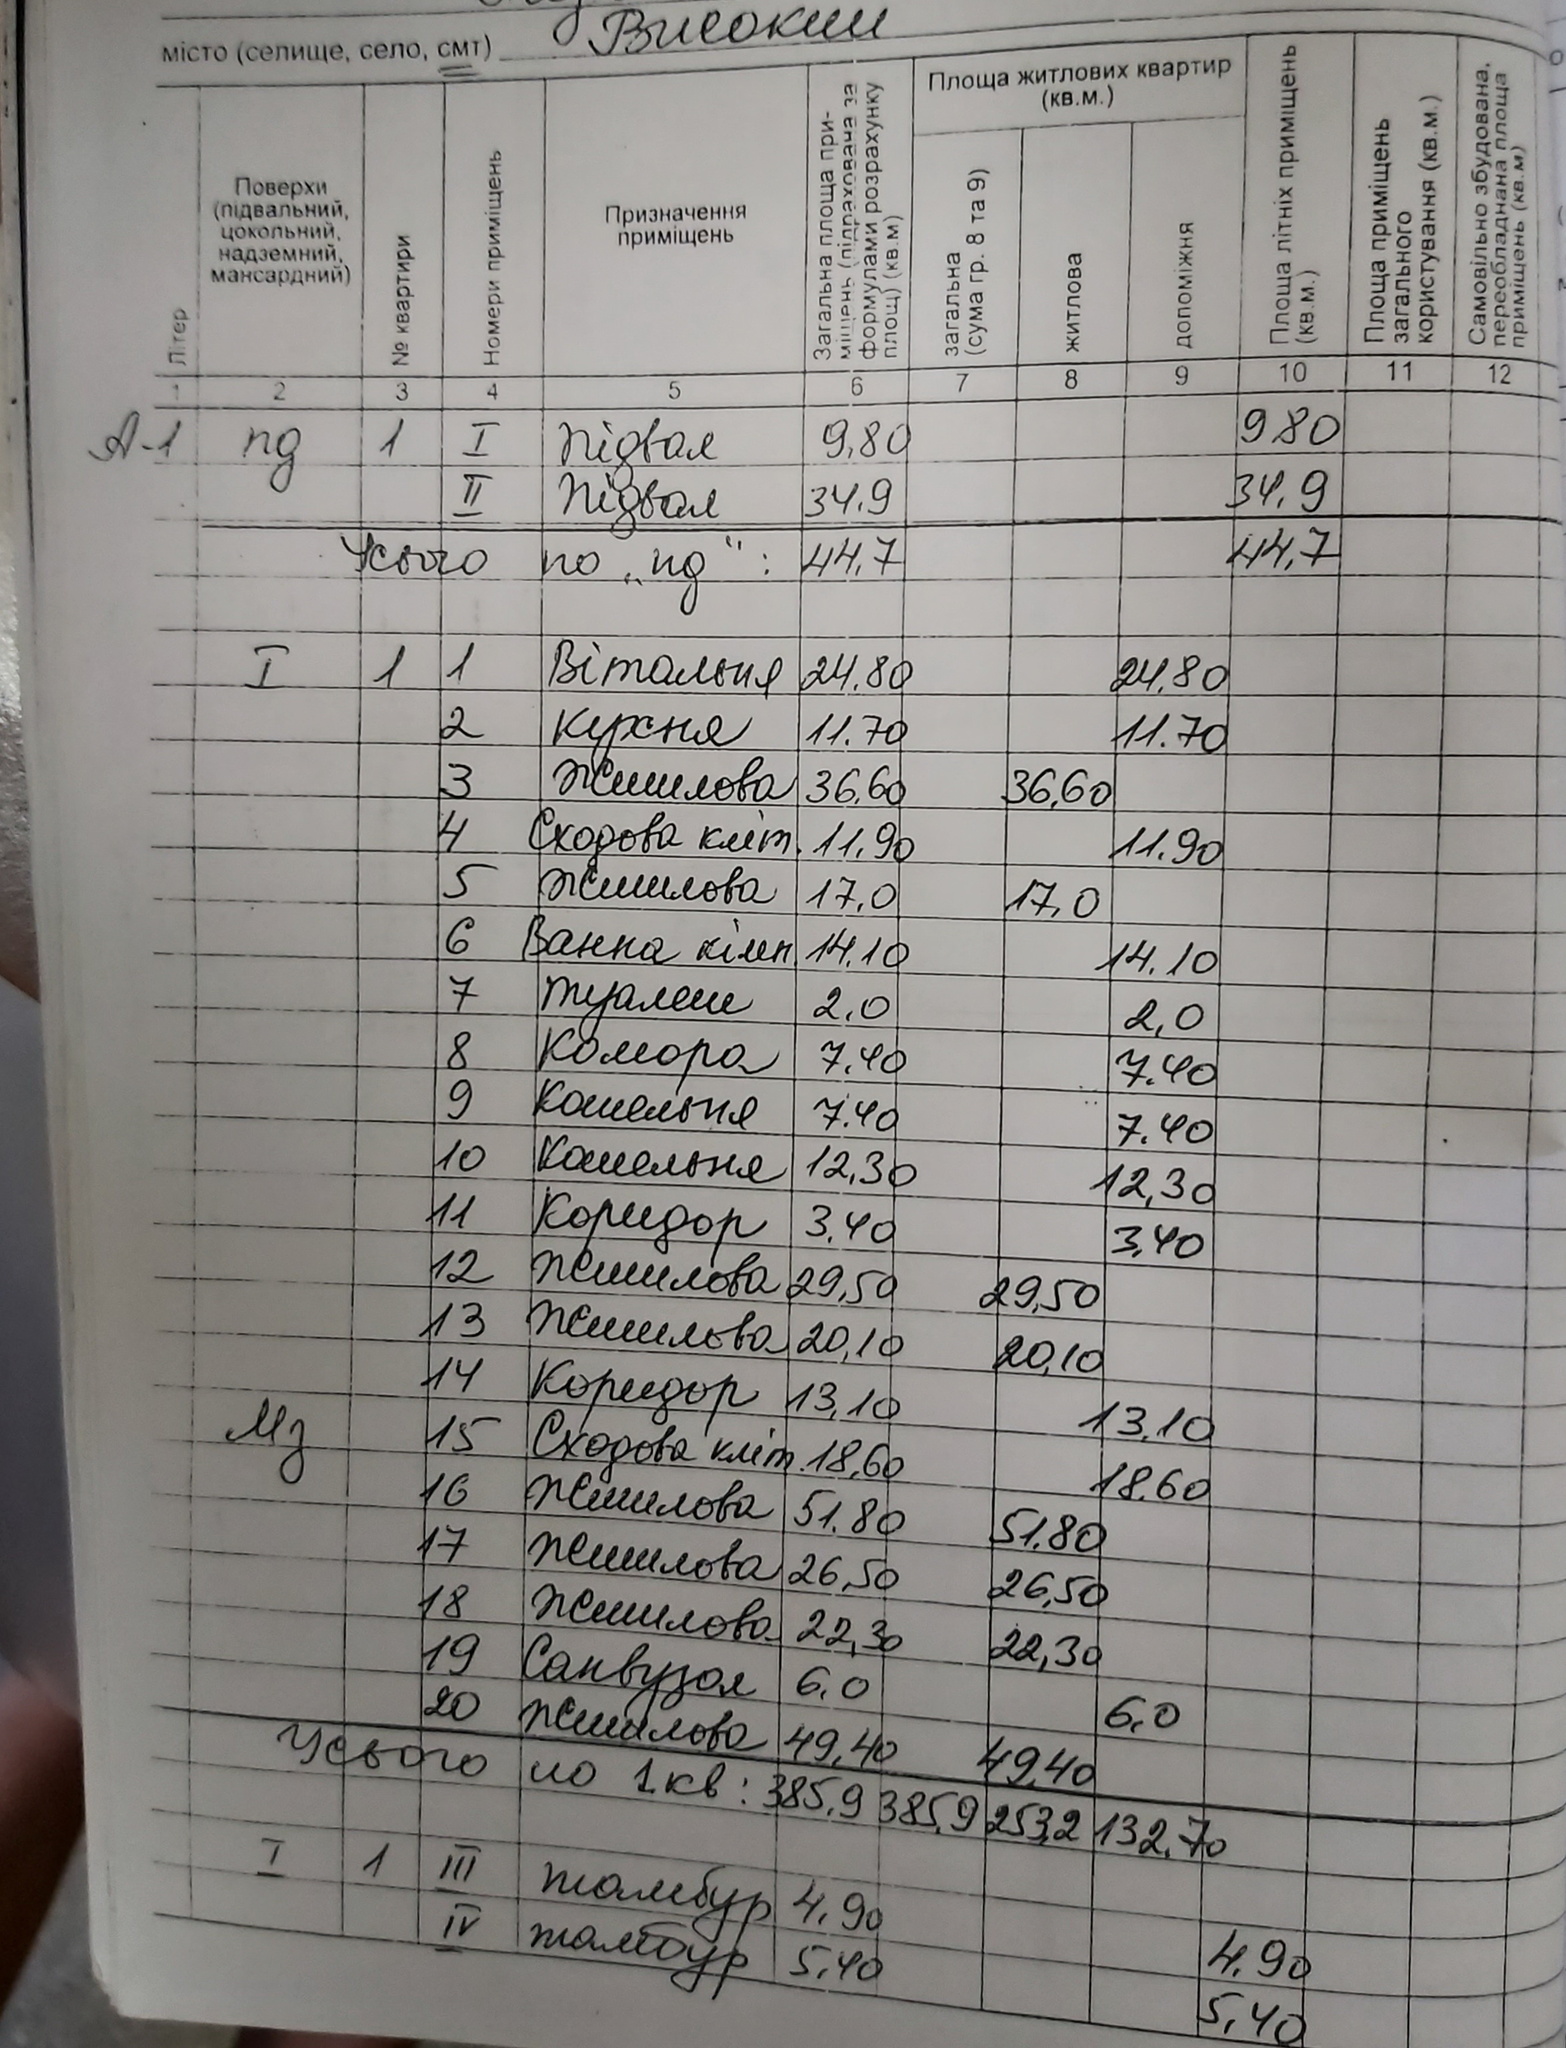 місто (селище, село, смт) Високий
Літер
Поверхи (підвальний, цокольний, надземний, мансардний)
№ квартири
Номери приміщень
Призначення приміщень
Загальна площа при-міщень (підрахована за формулами розрахунку площ) (кв.м)
Площа житлових квартир (кв.м.)
загальна (сума гр. 8 та 9)
житлова
допоміжня
Площа літніх приміщень (кв.м.)
Площа приміщень загального користування (кв.м.)
Самовільно збудована, переобладнана площа приміщень (кв.м)
1 2 3 4 5 6 7 8 9 10 11 12
А-1 пд 1 I Підвал 9,80 980
II Підвал 34.9 34.9
Усього по „пд“: 44,7 44,7
I 1 1 Вітальня 24.80 24.80
2 Кухня 11.70 11.70
3 Житлова 36,60 36,60
4 Сходова кліт. 11.90 11.90
5 Житлова 17,0 17,0
6 Ванна кімн. 14.10 14.10
7 Туалет 2,0 2,0
8 Комора 7.40 7.40
9 Котельня 7.40 7.40
10 Котельня 12,30 12,30
11 Коридор 3.40 3,40
12 Житлова 29,50 29,50
13 Житлова 20,10 20,10
14 Коридор 13,10 13,10
Мз 15 Сходова кліт. 18,60 18.60
16 Житлова 51.80 51.80
17 Житлова 26,50 26,50
18 Житлова 22,30 22,30
19 Санвузол 6,0 6,0
20 Житлова 49,40 49,40
Усього по 1 кв: 385,9 385,9 253,2 132,70
I 1 III тамбур 4,90 4,90
IV тамбур 5,40 5,40